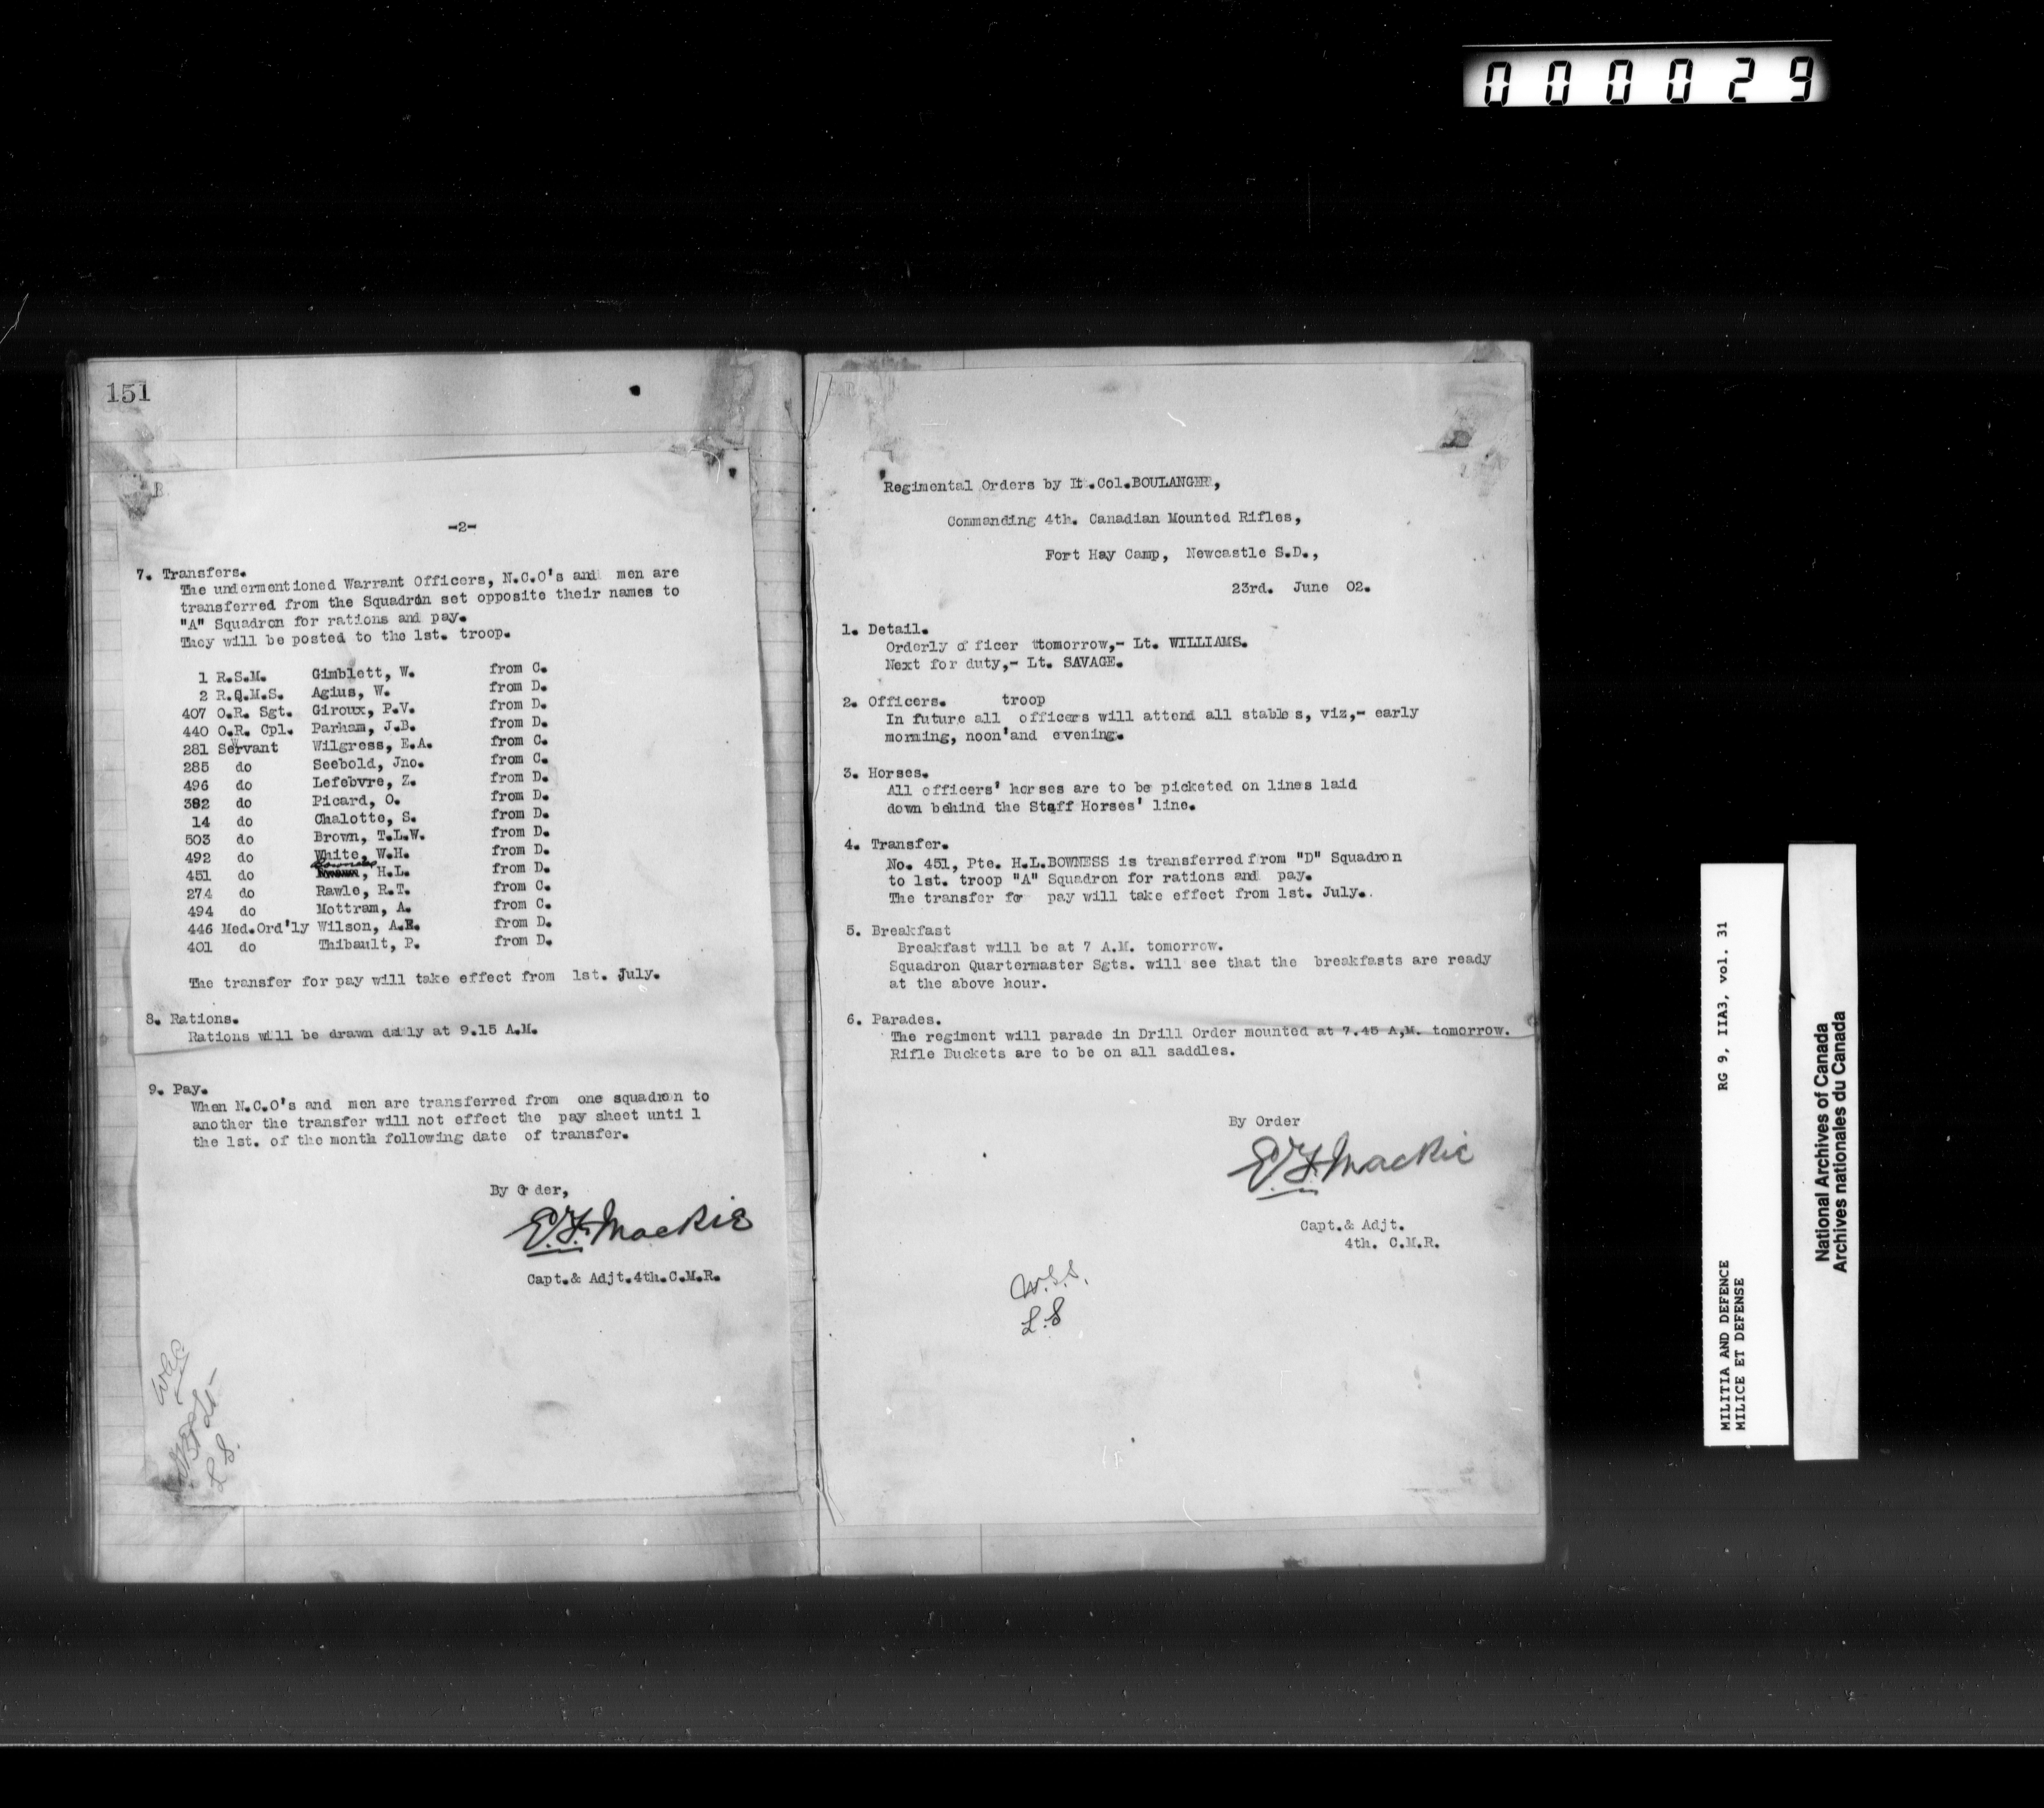 000029
151
-2-
7. Transfers.
The undermentioned Warrant Officers, N.C.O's and men are
transferred from the Squadron set opposite their names to
"A" Squadron for rations and pay.
They will be posted to the 1st. troop.
1 R.S.M. Gimblett, W. from C.
2 R.Q.M.S. Agius, W. from D.
407 O.R. Sgt. Giroux, P.V. from D.
440 O.R. Cpl. Parham, J.B. from D.
281 Servant Wilgress, E.A. from C.
285 do Seebold, Jno. from C.
496 do Lefebvre, Z. from D.
382 do Picard, O. from D.
14 do Chalotte, S. from D.
503 do Brown, T.L.W. from D.
492 do White, W.H. from D.
451 do Bowness, H.L. from D.
274 do Rawle, R.T. from C.
494 do Mottram, A. from C.
446 Med.Ord'ly Wilson, A.E. from D.
401 do Thibault, P. from D.
The transfer for pay will take effect from 1st. July.
8. Rations.
Rations will be drawn daily at 9.15 A.M.
9. Pay.
When N.C.O's and men are transferred from one squadron to
another the transfer will not effect the pay sheet until
the 1st. of the month following date of transfer.
By Order,
E.F. Mackie
Capt.& Adjt.4th.C.M.R.
L.S.
Regimental Orders by Lt.Col.BOULANGER,
Commanding 4th. Canadian Mounted Rifles,
Fort Hay Camp, Newcastle S.D.,
23rd. June 02.
1. Detail.
Orderly officer ttomorrow,- Lt. WILLIAMS.
Next for duty,- Lt. SAVAGE.
2. Officers. troop
In future all officers will attend all stables, viz,- early
morning, noon'and evening.
3. Horses.
All officers' horses are to be picketed on lines laid
down behind the Staff Horses' line.
4. Transfer.
No. 451, Pte. H.L.BOWNESS is transferred from "D" Squadron
to 1st. troop "A" Squadron for rations and pay.
The transfer for pay will take effect from 1st. July..
5. Breakfast
Breakfast will be at 7 A.M. tomorrow.
Squadron Quartermaster Sgts. will see that the breakfasts are ready
at the above hour.
6. Parades.
The regiment will parade in Drill Order mounted at 7.45 A,M. tomorrow.
Rifle Buckets are to be on all saddles.
By Order
E.F. Mackie
Capt.& Adjt.
4th. C.M.R.
L.S
MILITIA AND DEFENCE RG 9, IIA3, vol. 31
MILICE ET DEFENSE
National Archives of Canada
Archives nationales du Canada